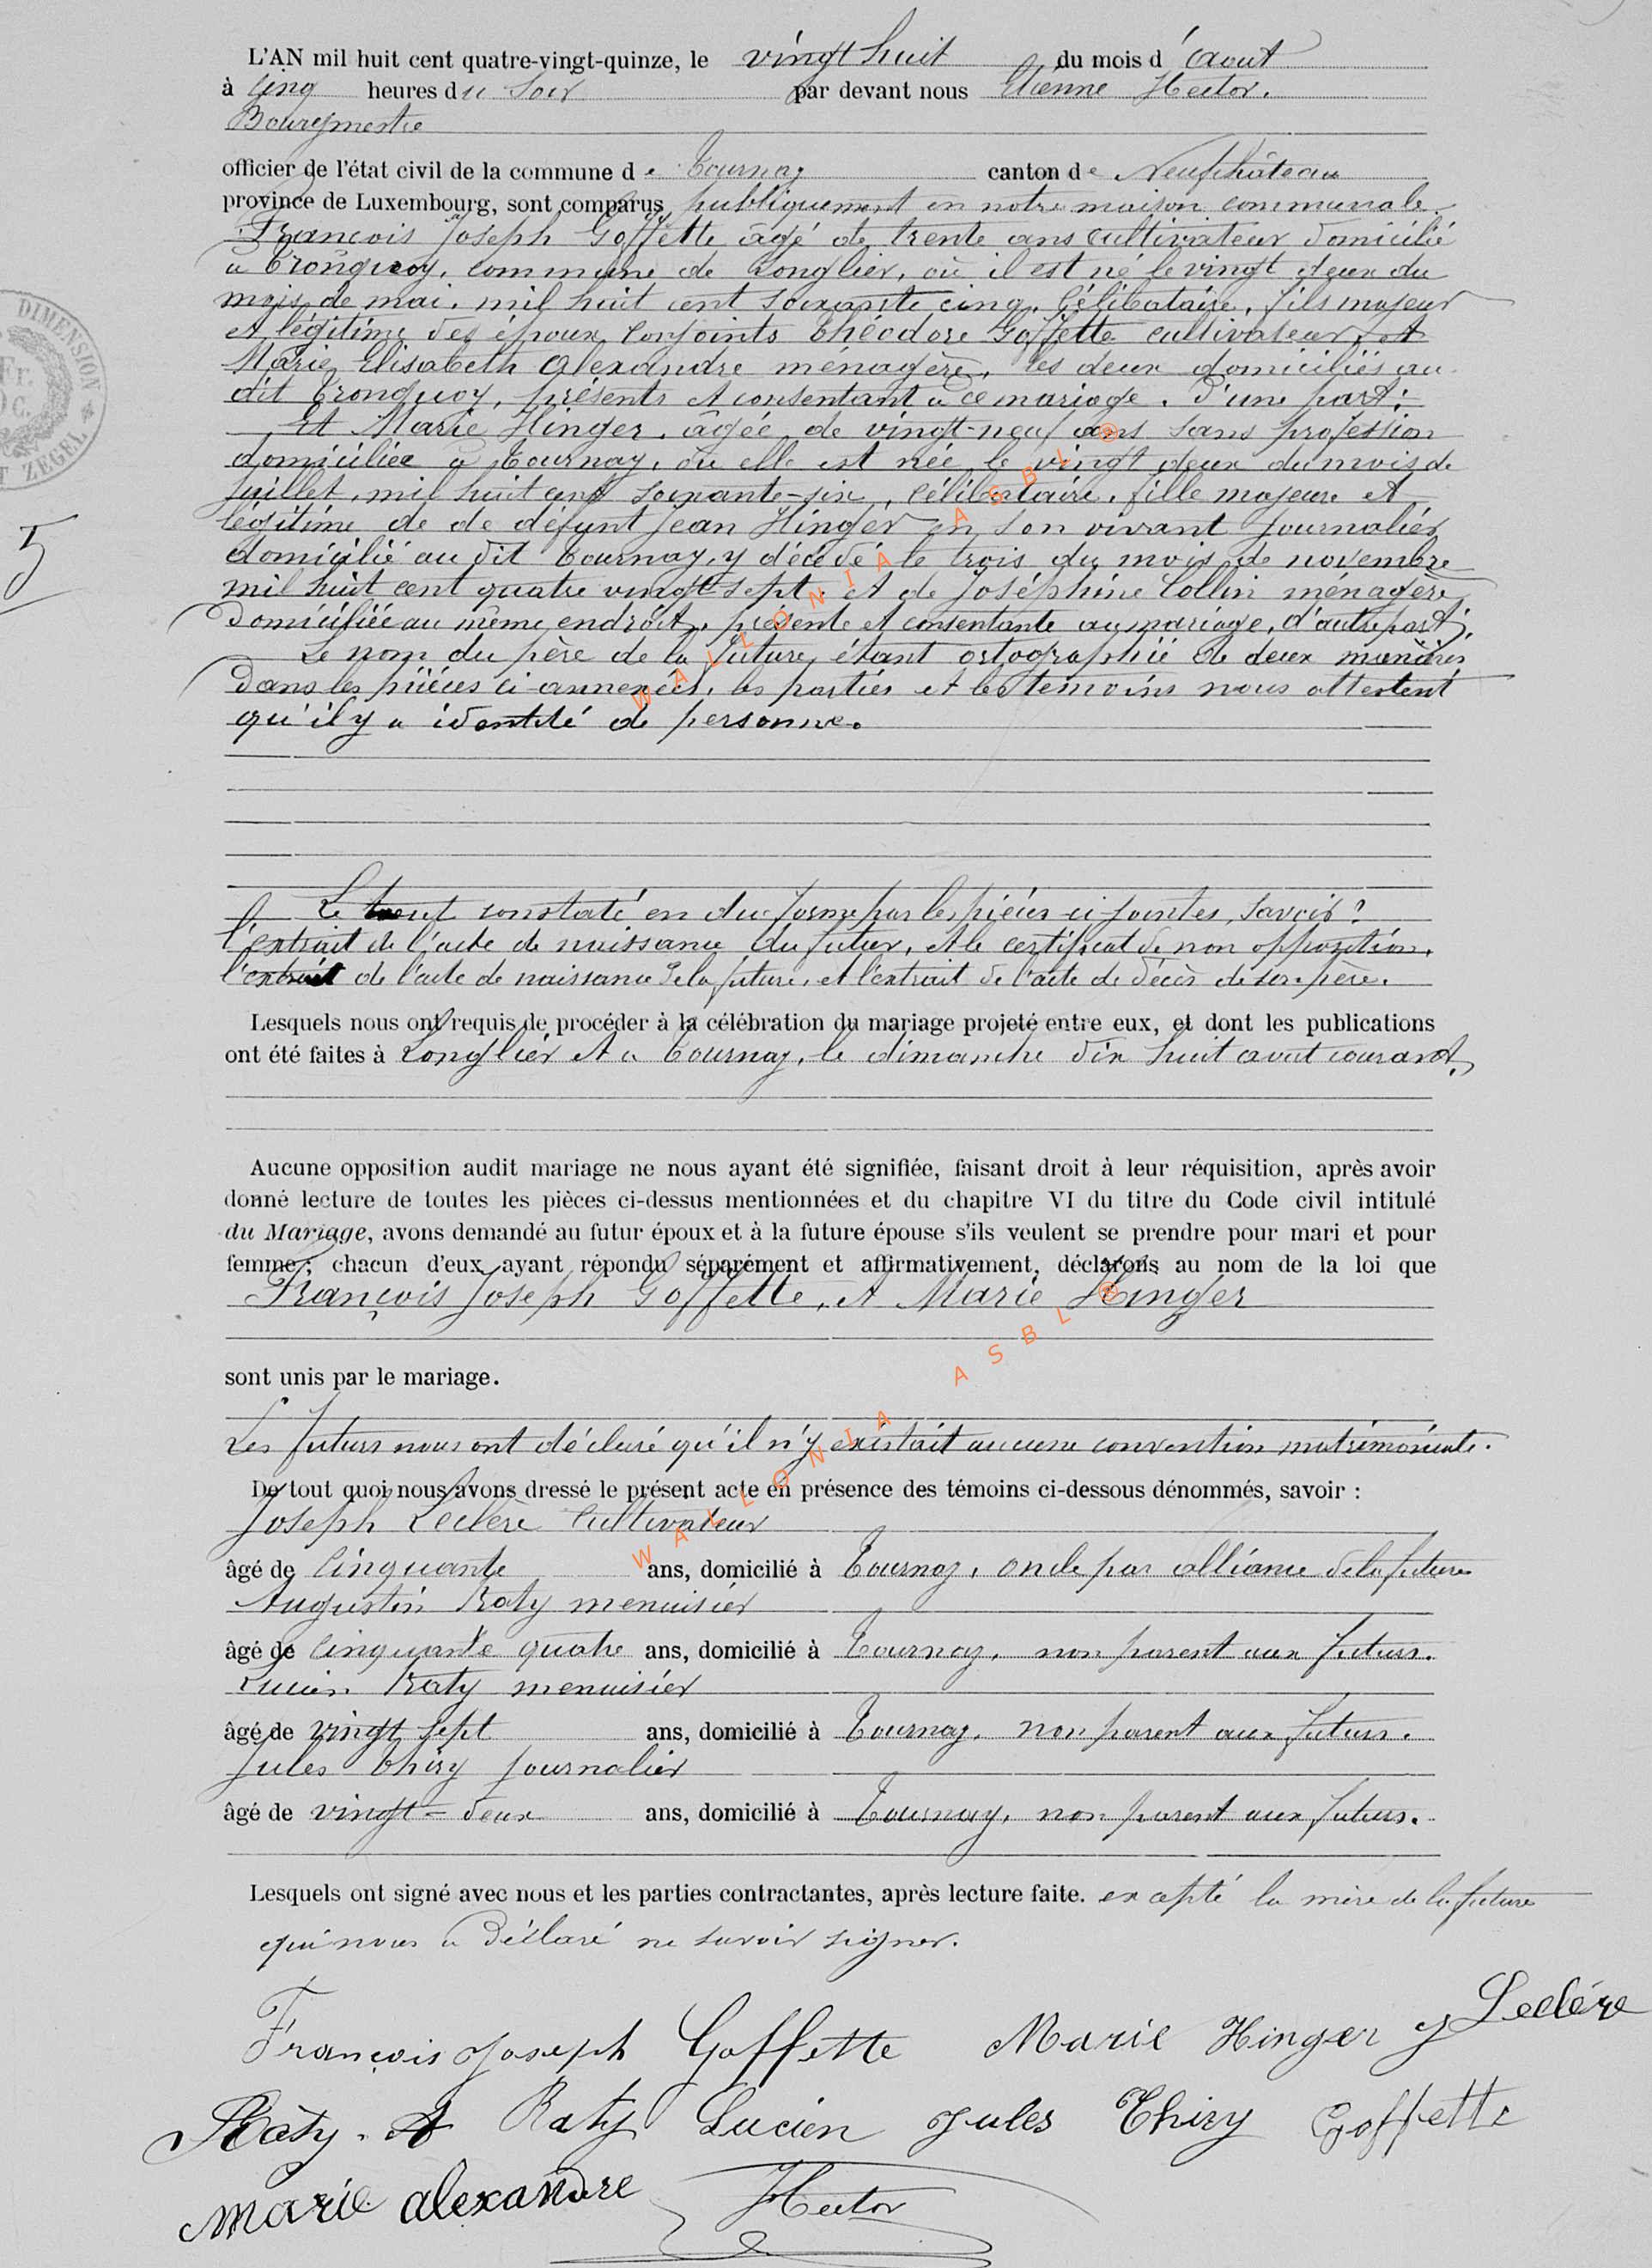 L'AN mil huit cent quatre-vingt-quinze, le vingt huit du mois d'août
à cinq heures du soir par devant nous Etienne Hector.
Bourgmestre
officier de l'état civil de la commune de Tournay canton de Neufchâteau
province de Luxembourg, sont comparus publiquement en notre maison communale
François Joseph Goffette âgé de trente ans cultivateur domicilié
à Tronquoy, commune de Longlier, où il est né le vingt deux du
mois de mai, mil huit cent soixante cinq, célibataire, fils majeur
et légitime des époux conjoints Théodore Goffette cultivateur, et
Marie Elisabeth Alexandre ménagère, les deux domiciliés au
dit Tronquoy, présents et consentant à ce mariage. D'une part;
Et Marie Hinger, âgée de vingt-neuf ans sans profession
domiciliée à Tournay, où elle est née le vingt deux du mois de
juillet, mil huit cent soixante-six, célibataire, fille majeure et
légitime de de défunt Jean Hinger en son vivant journalier
domicilié au dit Tournay, y décédé le trois du mois de novembre
mil huit cent quatre vingt sept, et de Joséphine Collin ménagère
domiciliée au même endroit, présente et consentante au mariage, d'autre part.
Le nom du père de la future étant ortographié de deux manières
dans les pièces ci-annexées, les parties et les témoins nous attestent
qu'il y a identité de personne.
Le tout constaté en due forme par les pièces ci-jointes, savoir?
l'extrait de l'acte de naissance du futur, et le certificat de non opposition.
l'extrait de l'acte de naissance de la future, et l'extrait de l'acte de décès de son père.
Lesquels nous ont requis de procéder à la célébration du mariage projeté entre eux, et dont les publications
ont été faites à Longlier et à Tournay, le dimanche dix huit aout courant.
Aucune opposition audit mariage ne nous ayant été signifiée, faisant droit à leur réquisition, après avoir
donné lecture de toutes les pièces ci-dessus mentionnées et du chapitre VI du titre du Code civil intitulé
du Mariage, avons demandé au futur époux et à la future épouse s'ils veulent se prendre pour mari et pour
femme; chacun d'eux ayant répondu séparément et affirmativement, déclarons au nom de la loi que
François Joseph Goffette, et Marie Hinger
sont unis par le mariage.
Les futurs nous ont déclaré qu'il n'y existait aucune convention matrimoniale.
De tout quoi nous avons dressé le présent acte en présence des témoins ci-dessous dénommés, savoir :
Joseph Leclère cultivateur
âgé de cinquante ans, domicilié à Tournay, oncle par alliance de la future
Augustin Raty menuisier
âgé de cinquante quatre ans, domicilié à Tournay, non parent aux futurs.
Lucien Raty menuisier
âgé de vingt sept ans, domicilié à Tournay, non parent aux futurs.
Jules Thiry journalier
âgé de vingt-deux ans, domicilié à Tournay, non parent aux futurs.
Lesquels ont signé avec nous et les parties contractantes, après lecture faite. excepté la mère de la future
qui nous a déclaré ne savoir signer.
François Joseph Goffette Marie Hinger J Leclère
Raty. A Raty Lucien Jules Thiry Goffette
Marie alexandre Hector
5
DIMENSION
ZEGEL
WALLONIA ASBL ®
WALLONIA ASBL ®